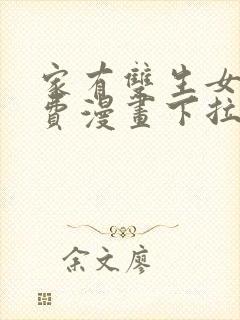 家有雙生女
費漫畫下拉
余文廖